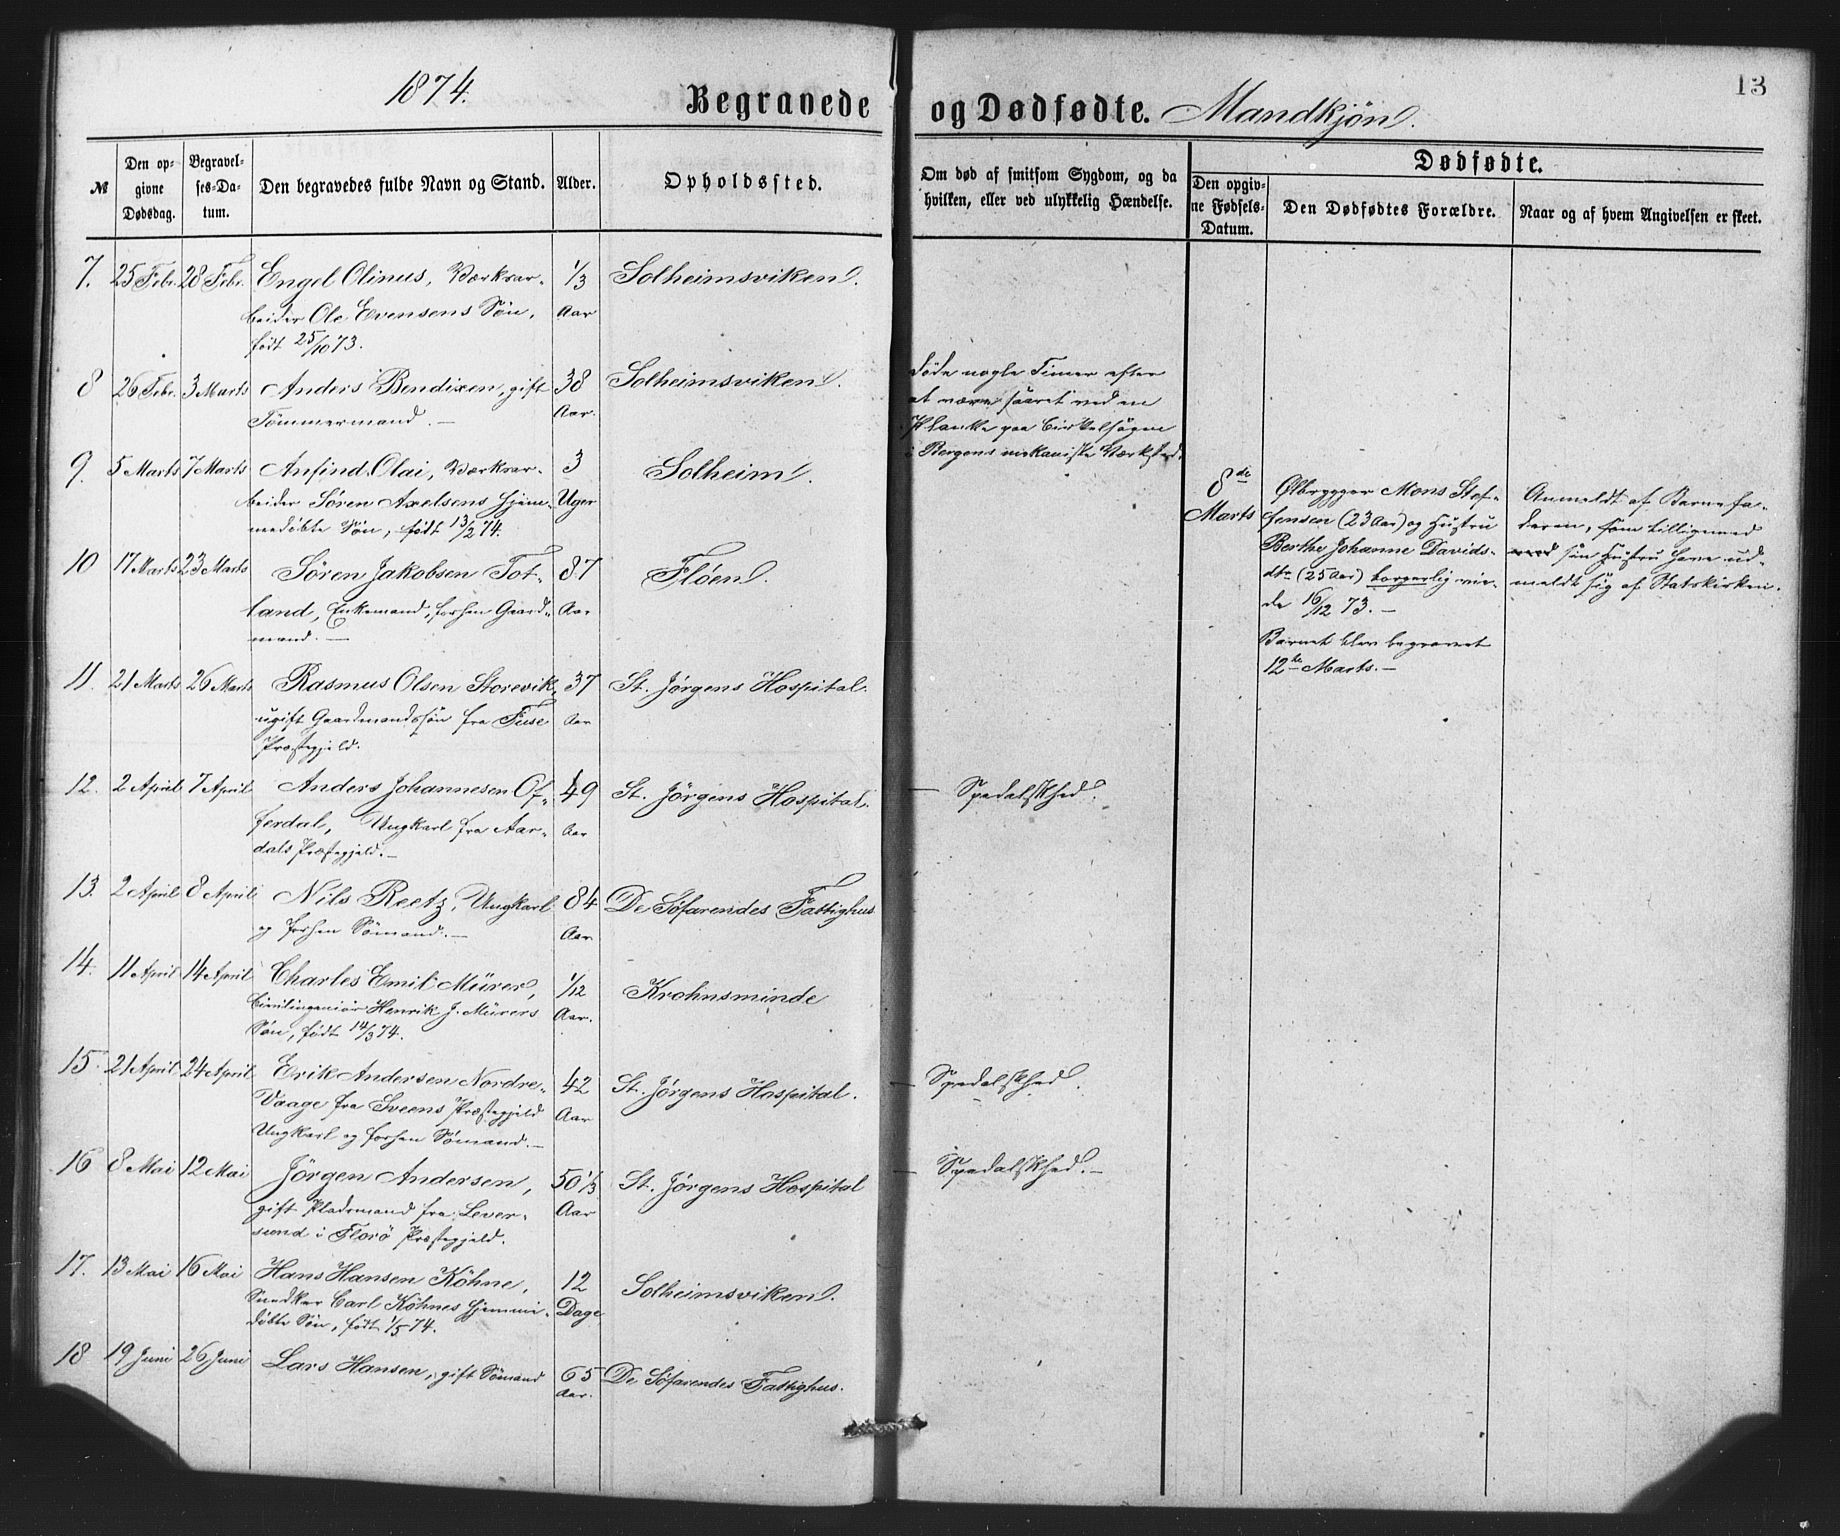 1874.
Begravede
og Dødfødte. Mandkjøn.
13
№
Den op-
givne
Dødsdag.
Begravel-
ses-Da-
tum.
Den begravedes fulde Navn og Stand.
Alder.
Opholdssted.
Om død af smitsom Sygdom, og da
hvilken, eller ved ulykkelig Hændelse.
Dødfødte.
Den opgiv-
ne Fødsels-
Datum.
Den Dødfødtes Forældre.
Naar og af hvem Angivelsen er skeet.
7. 25 Febr. 28 Febr. Engel Olinus, Værksar- 1/3 Solheimsviken.
beider Ole Evensens Søn, Aar
født 25/10 73.
8 26 Febr. 3 Marts Anders Bendixen, gift 38 Solheimsviken.
Tømmermand. — Aar.
døde nogle Timer efter
at være saaret ved en
Planke paa Cirkelsagen
i Bergens mekaniske Værksted.
9. 5 Marts 7 Marts Anfind Olai, Værksar- 3 Solheim.
beider Søren Axelsens hjem- Uger
medøbte Søn, født 13/2 74.
8de
Marts
Ølbrygger Mons Stef-
fensen (23 Aar) og Hustru
Berthe Johanne Davids-
dtr (25 Aar) borgerlig vie-
de 16/12 73. —
Barnet blev begravet
12te Marts. —
Anmeldt af Barnefa-
deren, som tilligemed
med sin Hustru have ud-
meldt sig af Statskirken.
10 17 Marts 23 Marts Søren Jakobsen Tot- 87 Fløen.
land, Enkemand, forhen Gaard- Aar
mand. —
11. 21 Marts 26 Marts Rasmus Olsen Storevik, 37 St. Jørgens Hospital.
ugift Gaardmandssøn fra Fuse Aar
Præstegjeld.
12. 2 April 7 April Anders Johannesen Of- 49 St. Jørgens Hospital. — Spedalskhed.
ferdal, Ungkarl fra Aar- Aar
dals Præstegjeld. —
13. 2 April 8 April Nils Reetz, Ungkarl 84 De Søfarendes Fattighus
og forhen Sømand. — Aar
14. 11 April 14 April Charles Emil Mürer, 1/12 Krohnsminde
Civilingeniør Henrik J. Mürers Aar.
Søn, født 14/3 74.
15. 21 April 24 April Erik Andersen Nordre- 42 St. Jørgens Hospital. — Spedalskhed.
Vaage fra Sveens Præstegjeld Aar
Ungkarl og forhen Sømand. —
16 8 Mai 12 Mai Jörgen Andersen, 50 1/3 St. Jørgens Hospital — Spedalskhed. —
gift Pladsmand fra Lever- Aar
sund i Florø Præstegjeld.
17. 13 Mai 16 Mai Hans Hansen Köhne, 12 Solheimsviken.
Snedker Carl Köhnes hjemme- Dage
døbte Søn, født 1/5 74.
18 19 Juni 26 Juni Lars Hansen, gift Sømand 65 De Søfarendes Fattighus.
Aar.